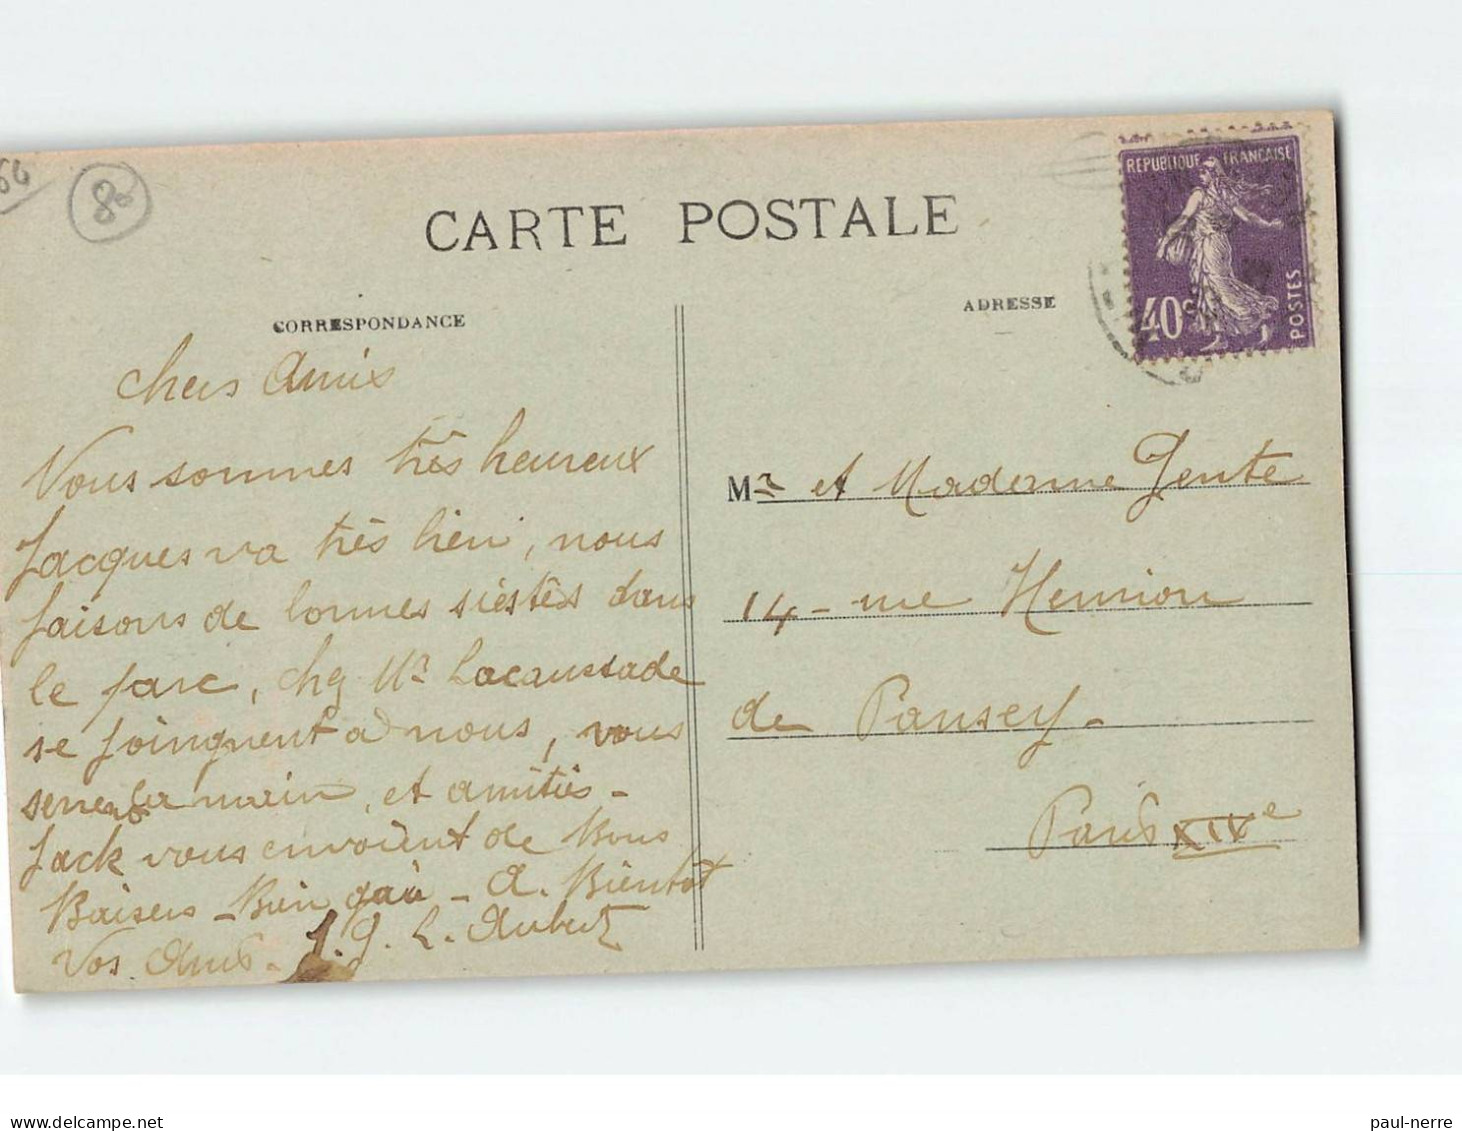 64
80
CARTE POSTALE
REPUBLIQUE FRANCAISE
40c
POSTES
CORRESPONDANCE
ADRESSE
Chers Amis
Nous sommes très heureux
Jacques va très bien, nous
faisons de bonnes siéstes dans
le parc, Mr Lacaussade
se joingnent a nous, vous
serrer la main, et amitiés -
Jack vous envoient de Bons
Baisers - Bien gai - A. Bientôt
Vos Amis - J. J. L. Aubert
Mr et Madame Gente
14 - rue Henrion
de Pansey -
Paris XIVe
paul-nerre